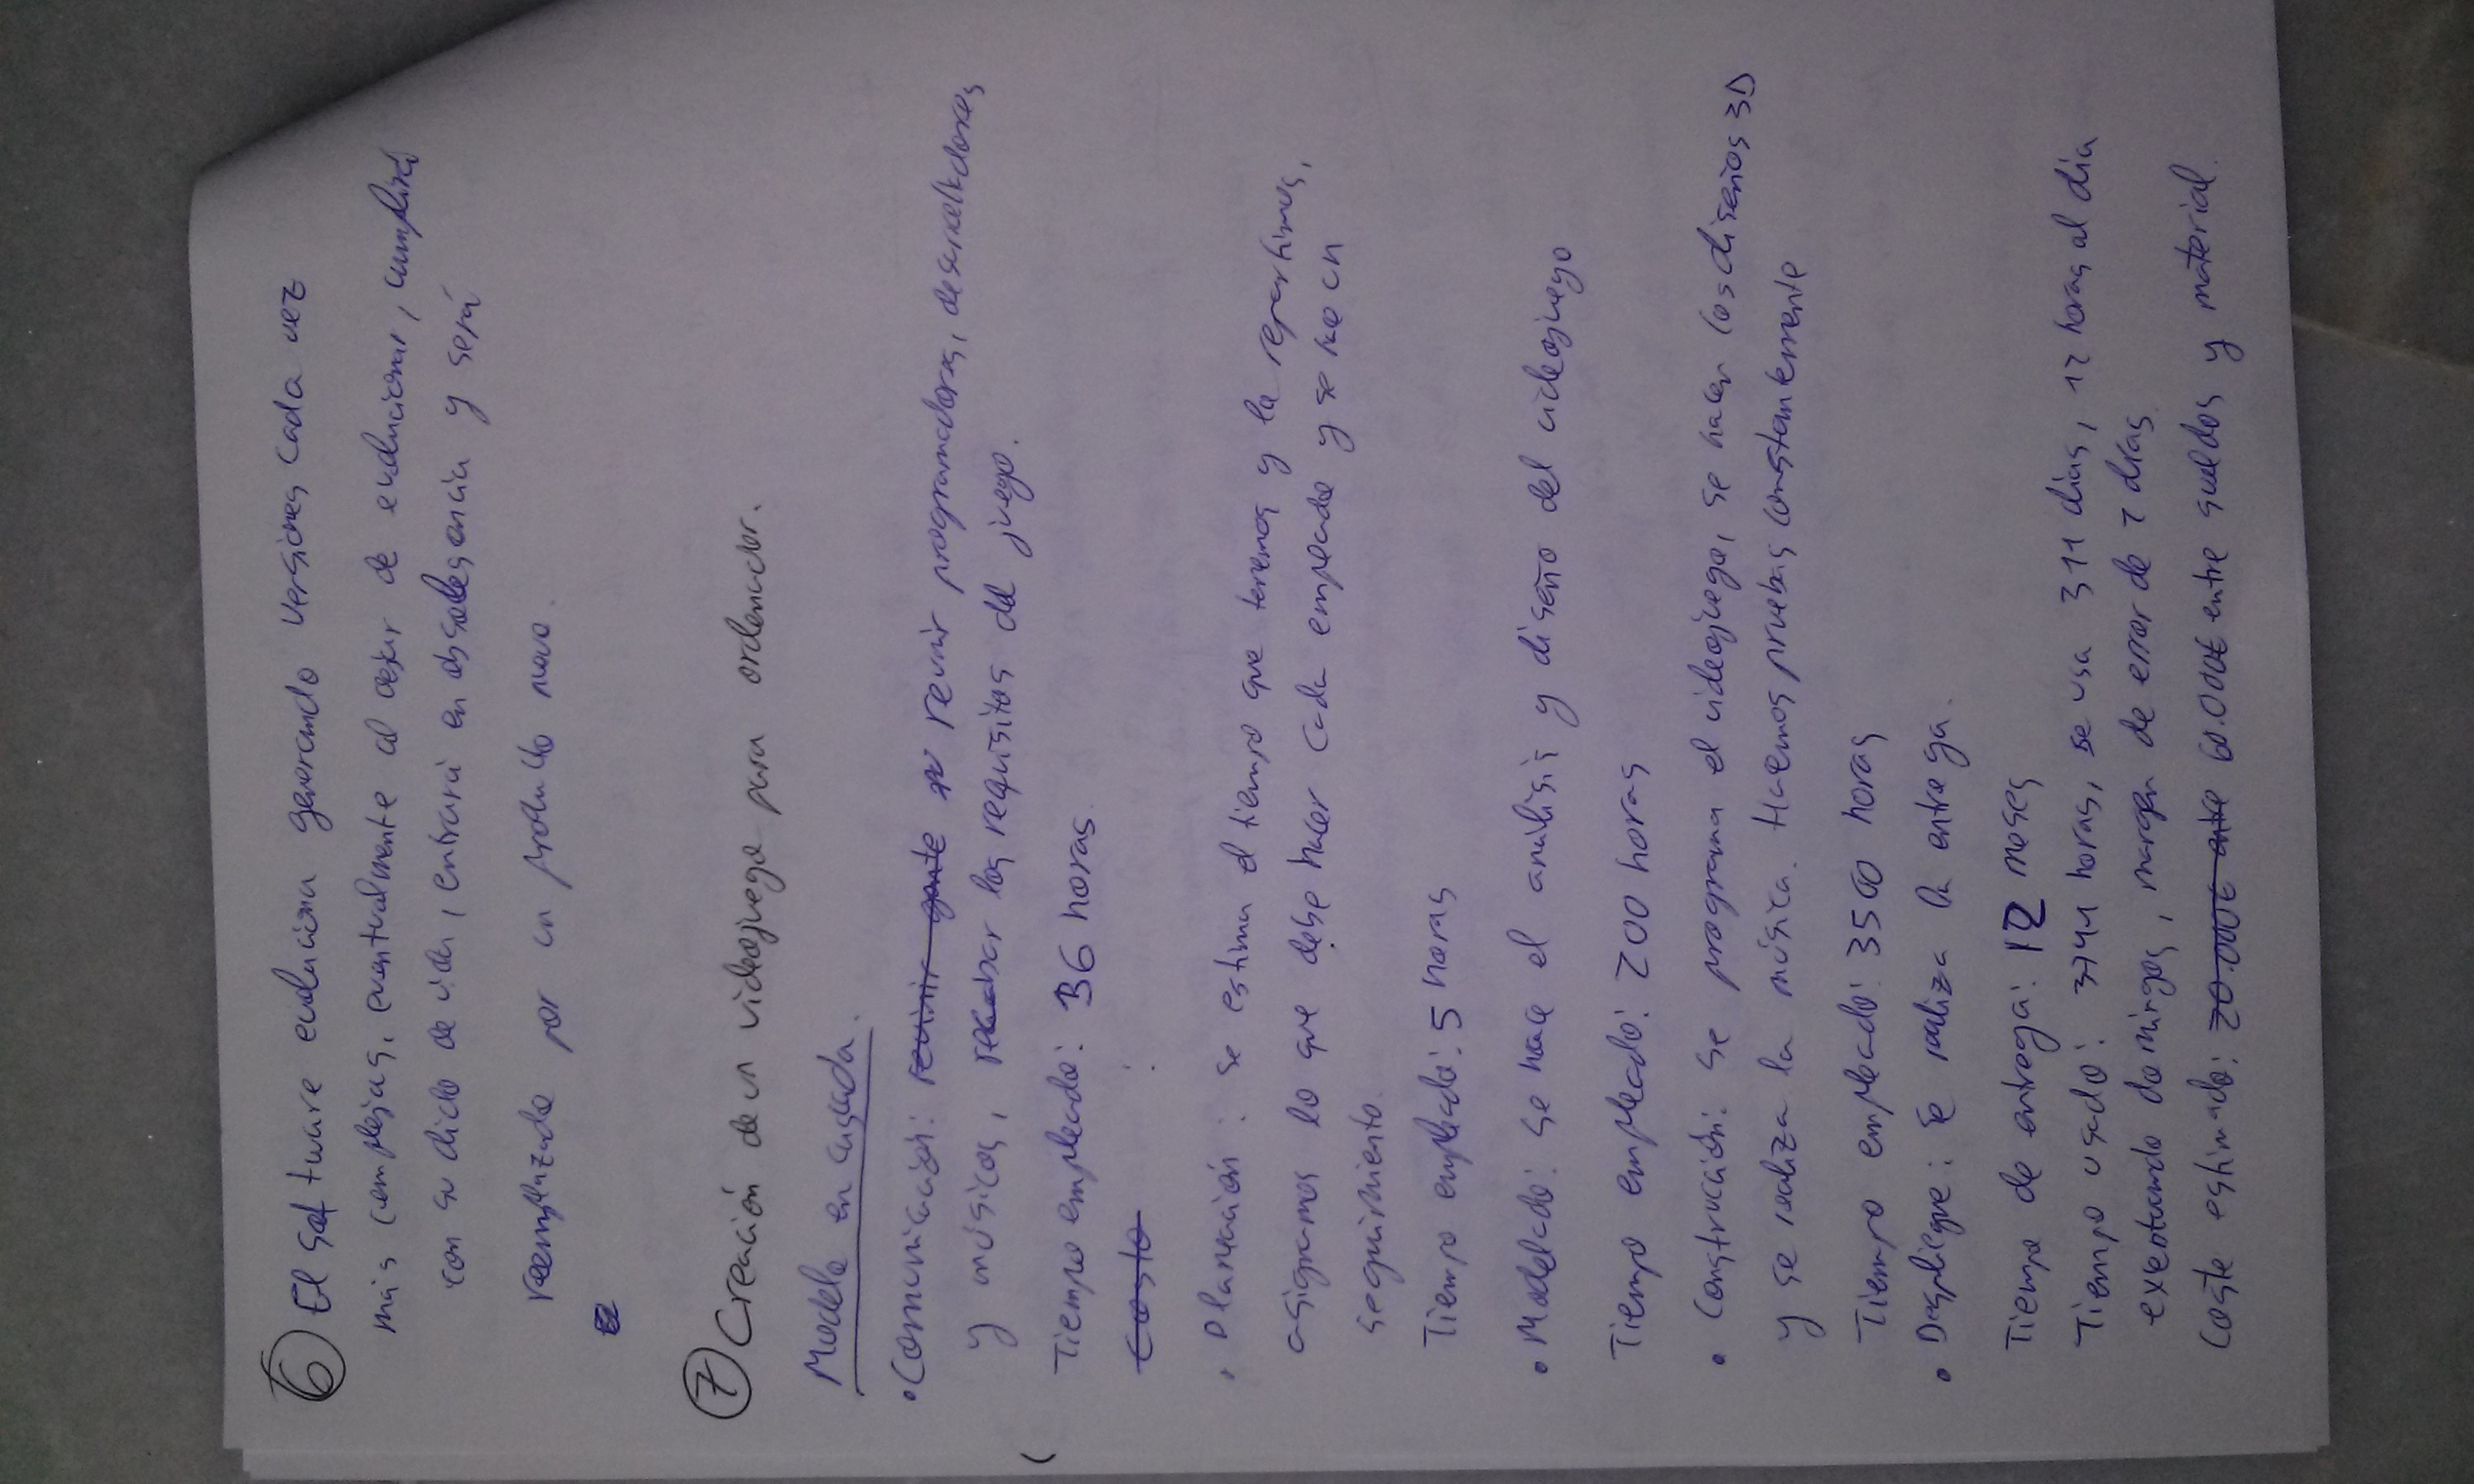 6 El software evoluciona generando versiones cada vez
más complejas, eventualmente al dejar de evolucionar, cumplirá
con su ciclo de vida, entrará en obsolesencia y será
reemplazado por un producto nuevo.
7 Creación de un videojuego para ordenador.
Modelo en cascada.
• Comunicación: reunir gente reunir programadores, desarrolladores
y músicos, recabar los requisitos del juego.
Tiempo empleado: 36 horas.
Costo :
• Planeación: se estima el tiempo que tenemos y lo repartimos,
asignamos lo que debe hacer cada empleado y se hace un
seguimiento.
Tiempo empleado: 5 horas
• Modelado: se hace el análisis y diseño del videojuego
Tiempo empleado: 200 horas
• Construcción: se programa el videojuego, se hacen los diseños 3D
y se realiza la música. Hacemos pruebas constantemente
Tiempo empleado: 3500 horas
• Despliegue: se realiza la entrega.
Tiempo de entrega: 12 meses
Tiempo usado: 3741 horas, se usa 311 días, 12 horas al día
exeptuando domingos, margen de error de 2 días
Coste estimado: 20.000€ entre 60.000€ entre sueldos y material.